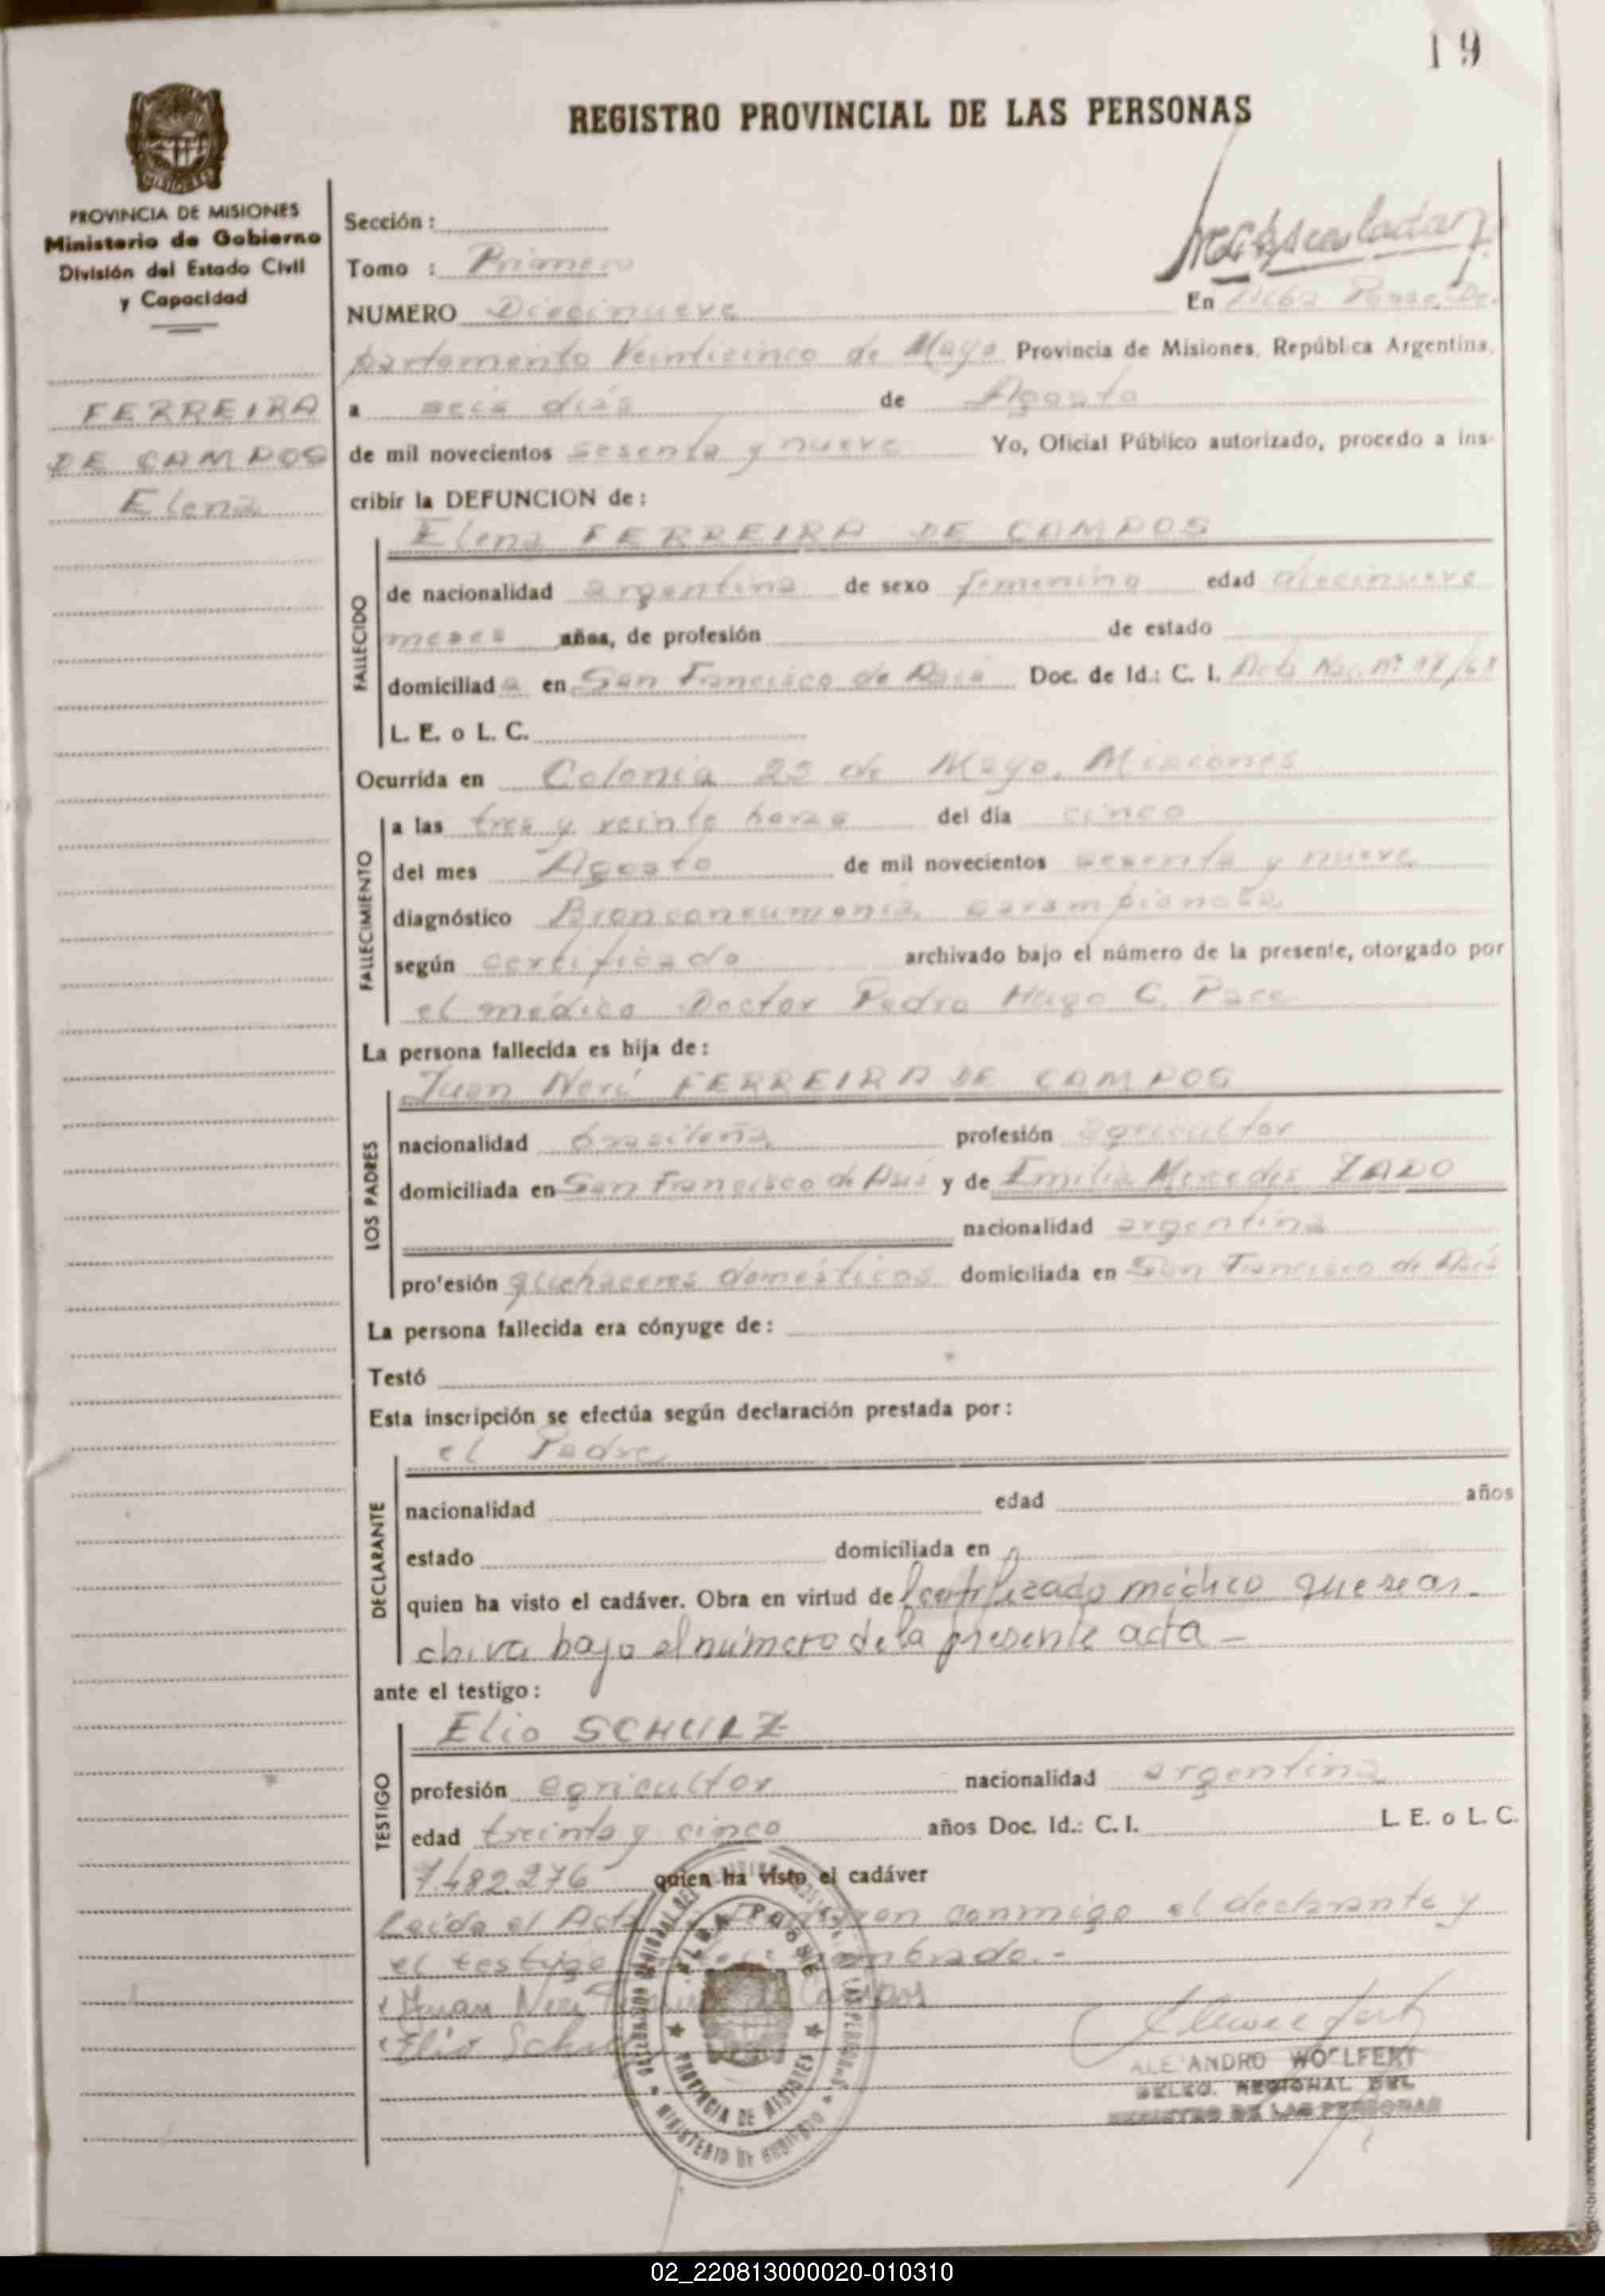 19
REGISTRO PROVINCIAL DE LAS PERSONAS
MISIONES
PROVINCIA DE MISIONES
Ministerio de Gobierno
División del Estado Civil
y Capacidad
FERREIRA
DE CAMPOS
Elena
Sección :
Tomo : Primero
NUMERO Diecinueve
En Alba Posse, De-
partamento Veinticinco de Mayo Provincia de Misiones, República Argentina,
a seis días de Agosto
de mil novecientos sesenta y nueve Yo, Oficial Público autorizado, procedo a ins-
cribir la DEFUNCION de :
Elena FERREIRA DE CAMPOS
FALLECIDO
de nacionalidad argentina de sexo femenino edad diecinueve
meses años, de profesión de estado
domiciliad a en San Francisco de Asís Doc. de Id.: C. I. Acta Nac. Nº /68
L. E. o L. C.
Ocurrida en Colonia 25 de Mayo, Misiones
FALLECIMIENTO
a las tres y veinte horas del día cinco
del mes Agosto de mil novecientos sesenta y nueve
diagnóstico Bronconeumonía sarampionosa
según certificado archivado bajo el número de la presente, otorgado por
el médico Doctor Pedro Hugo C. Pace
La persona fallecida es hija de :
Juan Neri FERREIRA DE CAMPOS
LOS PADRES
nacionalidad brasileña profesión agricultor
domiciliada en San Francisco de Asís y de Emilia Mercedes ZADO
nacionalidad argentina
profesión quehaceres domésticos domiciliada en San Francisco de Asís
La persona fallecida era cónyuge de :
Testó
Esta inscripción se efectúa según declaración prestada por :
el Padre
DECLARANTE
nacionalidad edad años
estado domiciliada en
quien ha visto el cadáver. Obra en virtud del certificado médico que se ar-
chiva bajo el número de la presente acta -
ante el testigo :
Elio SCHULZ
TESTIGO
profesión agricultor nacionalidad argentina
edad treinta y cinco años Doc. Id.: C. I. L. E. o L. C.
7.482.276 quien ha visto el cadáver
Leída el Acta firmaron conmigo el declarante y
el testigo antes nombrado.-
Juan Neri Ferreira de Campos
Elio Schulz
ALBA POSSE
PROVINCIA DE MISIONES
MINISTERIO DE GOBIERNO
ALEJANDRO WOLFERT
DELEG. REGIONAL DEL
REGISTRO DE LAS PERSONAS
02_220813000020-010310